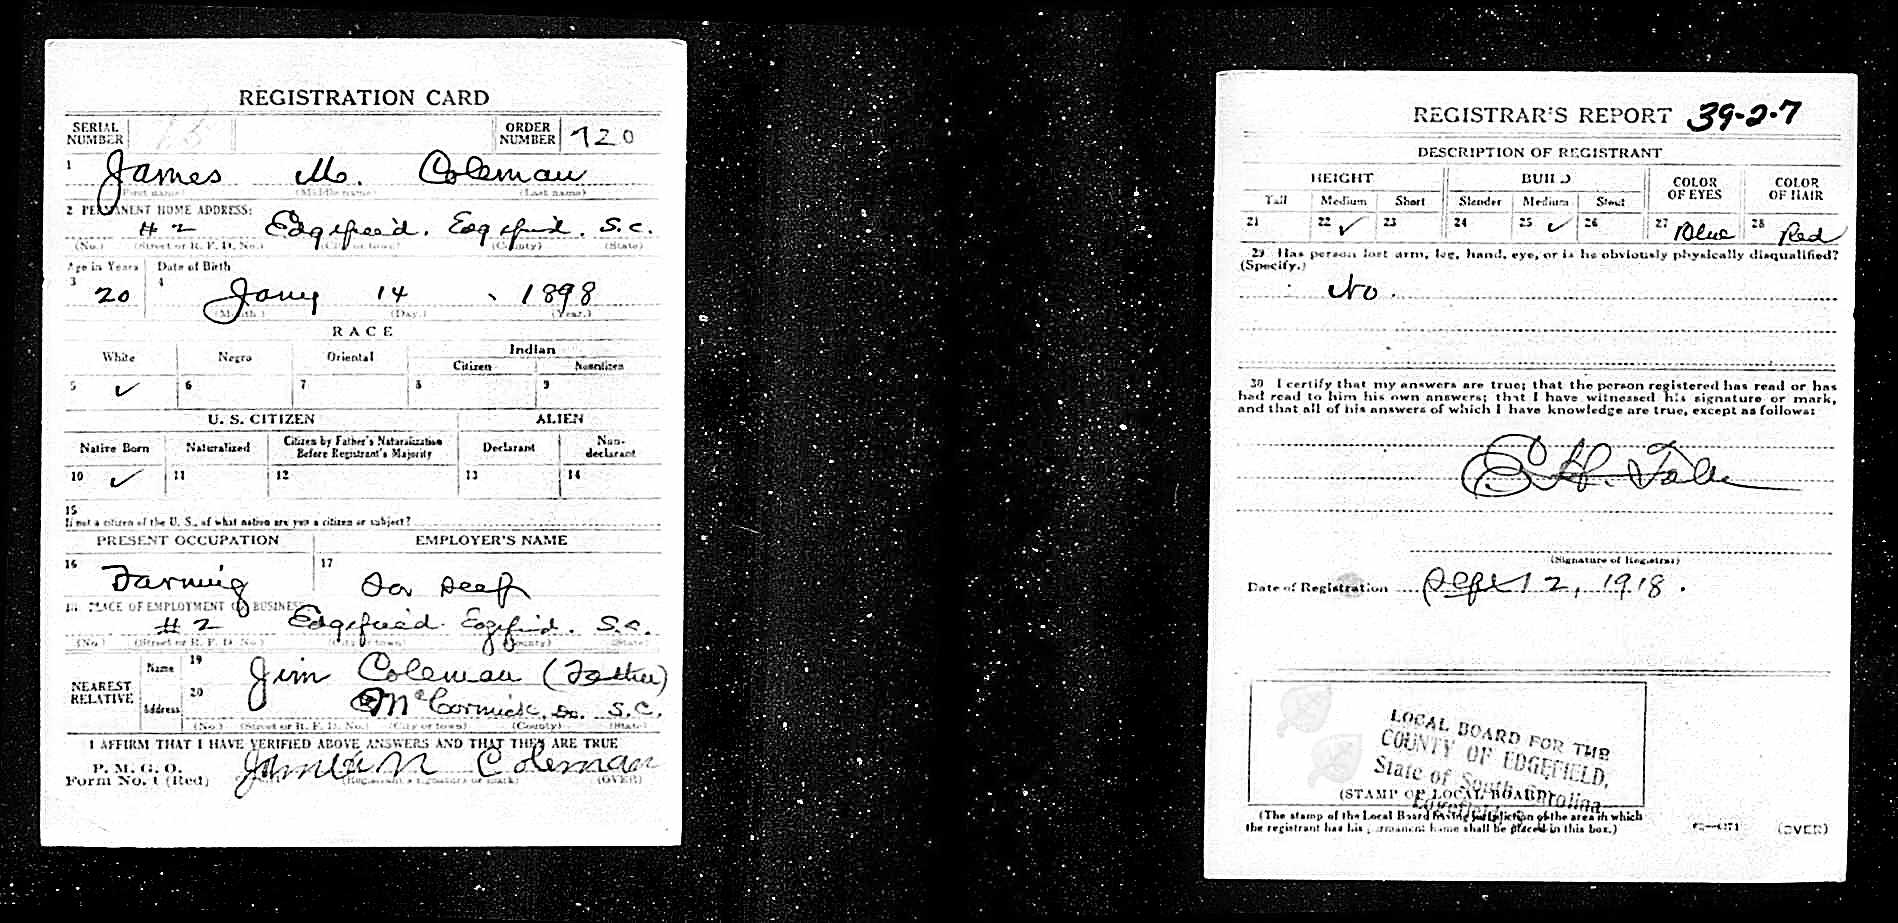 REGISTRATION CARD
SERIAL NUMBER 15 ORDER NUMBER 720
1 James M. Coleman
(First name) (Middle name) (Last name)
2 PERMANENT HOME ADDRESS:
# 2 Edgefield. Edgefield. S.C.
(No.) (Street or R. F. D. No.) (City or town) (County) (State)
Age in Years Date of Birth
3 20 4 Jany 14, 1898
(Month.) (Day.) (Year.)
RACE
White Negro Oriental Indian
Citizen Noncitizen
5 ✓ 6 7 8 9
U. S. CITIZEN ALIEN
Native Born Naturalized Citizen by Father's Naturalization Before Registrant's Majority Declarant Non-declarant
10 ✓ 11 12 13 14
15
If not a citizen of the U. S., of what nation are you a citizen or subject?
PRESENT OCCUPATION EMPLOYER'S NAME
16 Farming 17 for self
18 PLACE OF EMPLOYMENT OR BUSINESS:
# 2 Edgefield. Edgefield. S.C.
(No.) (Street or R. F. D. No.) (City or town) (County) (State)
NEAREST RELATIVE Name 19 Jim Coleman (Father)
Address 20 McCormick, Co. S.C.
(No.) (Street or R. F. D. No.) (City or town) (County) (State)
I AFFIRM THAT I HAVE VERIFIED ABOVE ANSWERS AND THAT THEY ARE TRUE
P. M. G. O.
Form No. 1 (Red) Coleman
(Registrant's signature or mark) (OVER)
REGISTRAR'S REPORT 39-2-7
DESCRIPTION OF REGISTRANT
HEIGHT BUILD COLOR OF EYES COLOR OF HAIR
Tall Medium Short Slender Medium Stout
21 22 ✓ 23 24 25 ✓ 26 27 Blue 28 Red
29 Has person lost arm, leg, hand, eye, or is he obviously physically disqualified?
(Specify.)
No.
30 I certify that my answers are true; that the person registered has read or has
had read to him his own answers; that I have witnessed his signature or mark,
and that all of his answers of which I have knowledge are true, except as follows:
E. H.
(Signature of Registrar)
Date of Registration Sept 12, 1918.
LOCAL BOARD FOR THE
COUNTY OF EDGEFIELD,
State of South Carolina,
(STAMP OF LOCAL BOARD)
Edgefield,
(The stamp of the Local Board having jurisdiction of the area in which
the registrant has his permanent home shall be placed in this box.)
(OVER)